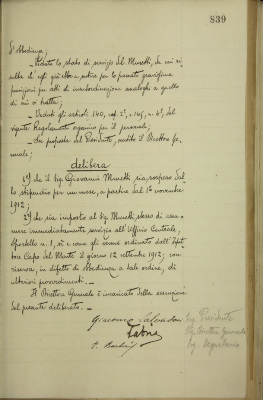 839
d'obbedienza;
- Veduto lo stato di servizio del Minetti, da cui ri-
sulta ch'egli già ebbe a subire per lo passato gravissime
punizioni per atti di insubordinazione analoghi a quello
di cui si tratta;
- Veduti gli articoli 140, cap. 2°, e 145, n. 4°, del
vigente Regolamento organico per il personale;
- Su proposta del Presidente, sentito il Direttore Ge-
nerale;
delibera
1°) che il Sig. Giovanni Minetti sia sospeso dal-
lo stipendio per un mese, a partire dal 1° novembre
1912;
2°) che sia imposto al Sig. Minetti stesso di assu-
mere immediatamente servizio all'Ufficio Centrale,
Sportello n. 1, sì e come gli venne ordinato dall'Ispet-
tore Capo del Monte il giorno 12 settembre 1912; con
riserva, in difetto di obbedienza a tale ordine, di
ulteriori provvedimenti. -
Il Direttore Generale è incaricato della esecuzione
del presente deliberato. -
Giacomo Salvadori
Il Presidente
Il Direttore Generale
Il Segretario